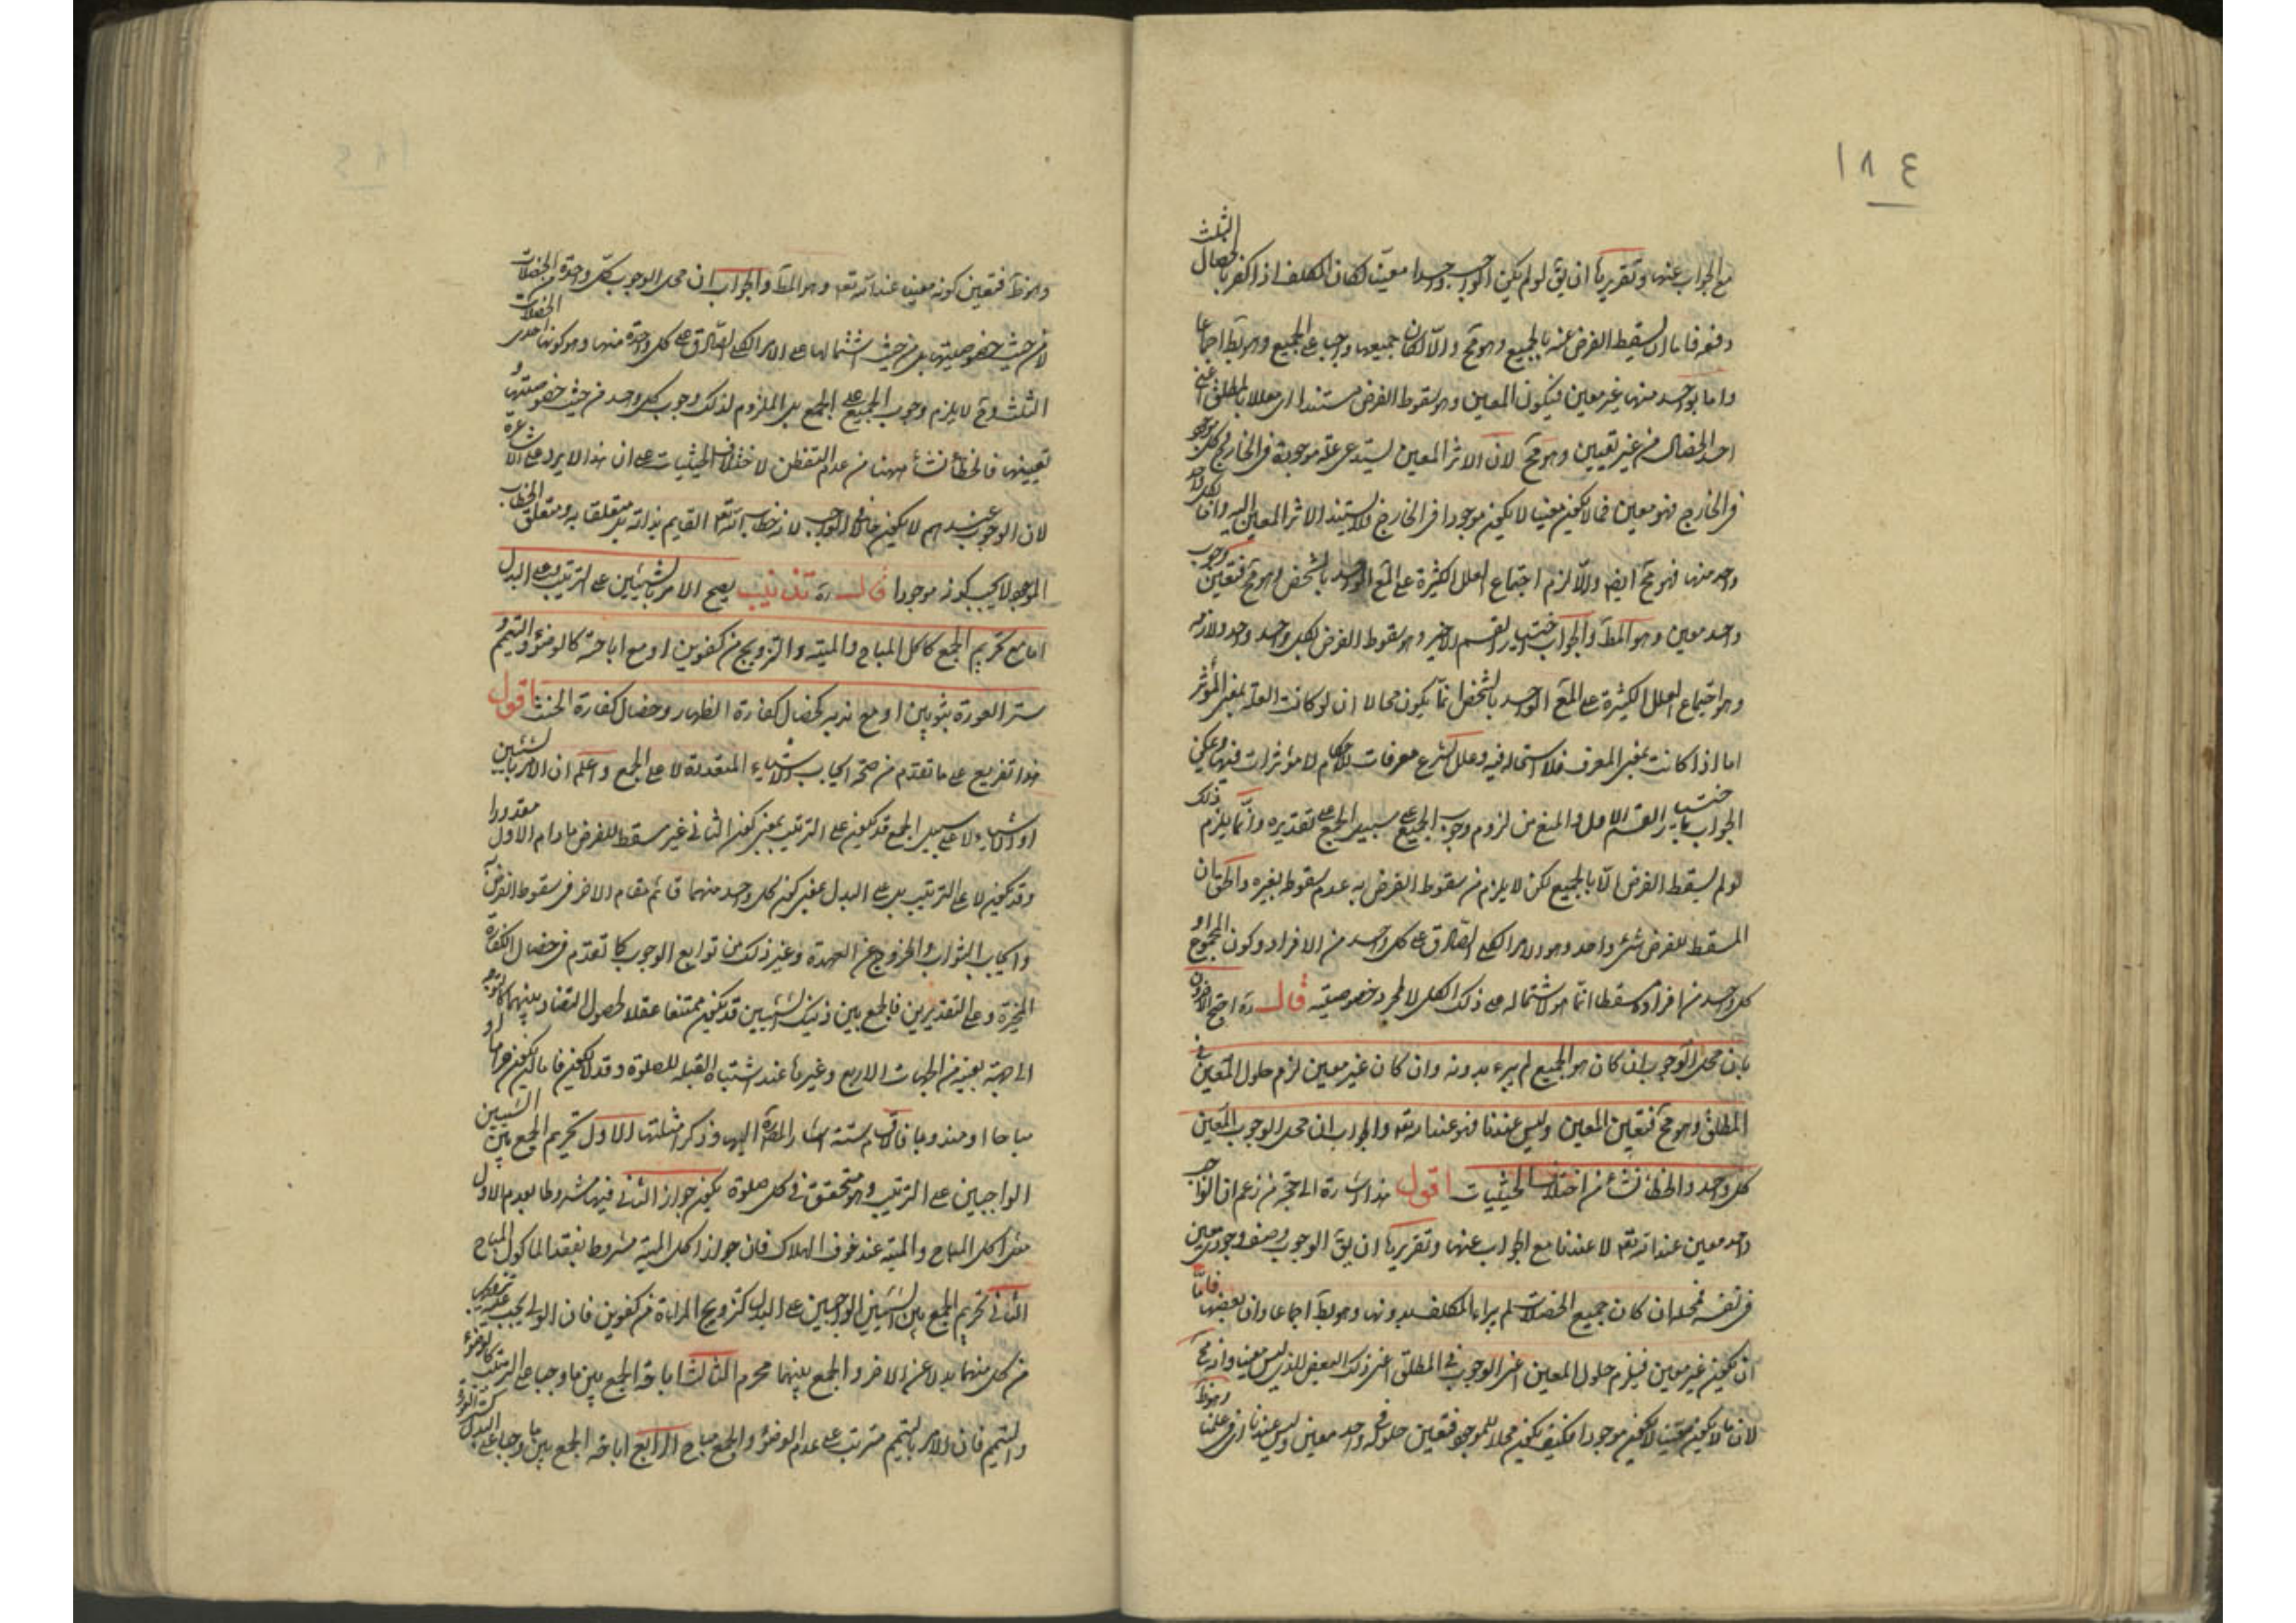 ١٨٤
مع الجواب عنها وتقريرها ان يق لو لم يكن الواجب واحدا معينا لكان المكلف اذا كفر بالخصال الثلث
دفعة فاما ان يسقط الفرض عنه بالجميع وهو مح والا لكان جميعها واجبا على الجميع وهو بط اجماعا
واما بواحد منها غير معين فيكون المعين وهو سقوط الفرض مستندا اى معللا بالمطلق اعنى
احد الخصال من غير تعيين وهو مح لان الاثر المعين يستدعى علة موجودة فى الخارج وكل موجود
فى الخارج فهو معين فما لا يكون معينا لا يكون موجودا فى الخارج فلا يستند الاثر المعين اليه واما بكل واحد
واحد منها فهو مح ايضا والا لزم اجتماع العلل الكثيرة على المع الواحد بالشخص وهو مح فتعين وجوب
واحد معين وهو المط والجواب نختار القسم الاخير وهو سقوط الفرض بكل واحد واحد ولازمه
وهو اجتماع العلل الكثيرة على المع الواحد بالشخص انما يكون محالا ان لو كانت العلة بمعنى المؤثر
اما اذا كانت بمعنى المعرف فلا استحالة فيه وعلل الشرع معرفات للاحكام لا مؤثرات فيها ويمكن
الجواب باختيار القسم الاول والمنع من لزوم وجوب الجميع على سبيل الجمع على تقديره وانما يلزم ذلك
لو لم يسقط الفرض الا بالجميع لكن لا يلزم من سقوط الفرض به عدم سقوطه بغيره والحق ان
المسقط للفرض شئ واحد وهو الامر الكلى الصادق على كل واحد من الافراد وكون المجموع او
كل واحد من افراده مسقطا انما هو لاشتماله على ذلك الكلى لا لمجرد خصوصيته قال ره احتج الاخرون
بان محل الوجوب ان كان هو الجميع لم يبرء بدونه وان كان غير معين لزم حلول المعين فى
المطلق وهو مح فتعين المعين وليس عندنا فهو عند الله تعه والجواب ان محل الوجوب المعين
كل واحد والخطا نشأ من اختلاف الحيثيات اقول هذا اشارة الى حجة من زعم ان الواجب
واحد معين عند الله تعه لا عندنا مع الجواب عنها وتقريرها ان يق الوجوب وصف وجودى معين
فى نفسه فمحله ان كان جميع الخصلات لم يبراء المكلف بدونها وهو بط اجماعا وان بعضها فاما
ان يكون غير معين فيلزم حلول المعين اعنى الوجوب فى المطلق اعنى ذلك البعض الذى ليس معينا وانه مح
لان ما لا يكون معينا لا يكون موجودا فكيف يكون محلا للموجود فتعين حلوله فى واحد معين وليس عندنا اى فى علمنا وهو ظ
وهو ظ فتعين كونه معينا عند الله تعه وهو المط والجواب ان محل الوجوب كل واحدة من الخصلات
لا من حيث خصوصيتها بل من حيث اشتمالها على الامر الكلى الصادق على كل واحدة منها وهو كونها احدى الخصلات
الثلث وح لا يلزم وجوب الجميع على الجمع بل الملزوم لذلك وجوب كل واحد من حيث خصوصيتها و
تعيينها فالخطأ نشأ ههنا من عدم التفطن لاختلاف الحيثيات على ان هذا لا يرد على الاشاعرة
لان الوجوب عندهم لا يكون حالا فى الواجب لانه خطاب الله تعه القايم بذاته بل متعلقا به ومتعلق الخطاب
الموجود لا يجب كونه موجودا قال ره تذنيب يصح الامر بالشيئين على الترتيب وعلى البدل
اما مع تحريم الجمع كاكل المباح والميتة والتزويج من كفوين او مع اباحته كالوضوء والتيمم و
ستر العورة بثوبين او مع ندبه كخصال كفارة الظهار وخصال كفارة الحنث اقول
هذا تفريع على ما تقدم من صحة ايجاب الاشياء المتعددة لا على الجمع واعلم ان الامر بالشيئين
او الاشياء لا على سبيل الجمع قد يكون على الترتيب بمعنى كون الثانى غير مسقط للفرض ما دام الاول مقدورا
وقد يكون لا على الترتيب بل على البدل بمعنى كون كل واحد منهما قائم مقام الاخر فى سقوط الفرض
وايجاب الثواب والخروج عن العهدة وغير ذلك من توابع الوجوب كما تقدم فى خصال الكفارة
المخيرة وعلى التقديرين فالجمع بين ذينك الشيئين قد يكون ممتنعا عقلا لحصول التضاد بينهما كالتوجه
الى جهة بعينه من الجهات الاربع وغيرها عند اشتباه القبلة للصلوة وقد لا يكون فاما ان يكون حراما او
مباحا او مندوبا فالاقسام ستة اشار المص ره اليها وذكر امثلتها الاول تحريم الجمع بين الشيئين
الواجبين على الترتيب وهو متحقق فى كل صلوة يكون جواز الثانى فيها مشروطا بعدم الاول
مثل اكل المباح والميتة عند خوف الهلاك فان جواز اكل الميتة مشروط بفقد الماكول المباح
الثانى تحريم الجمع بين الشيئين الواجبين على البدل كتزويج المراة من كفوين فان الولى يجب عليه تزويجها
من كل منهما بدلا عن الاخر والجمع بينهما محرم الثالث اباحة الجمع بين ما وجبا على الترتيب كالوضوء
والتيمم فان الامر بالتيمم مترتب على عدم الوضوء والجمع مباح الرابع اباحة الجمع بين ما وجبا على البدل كستر العورة